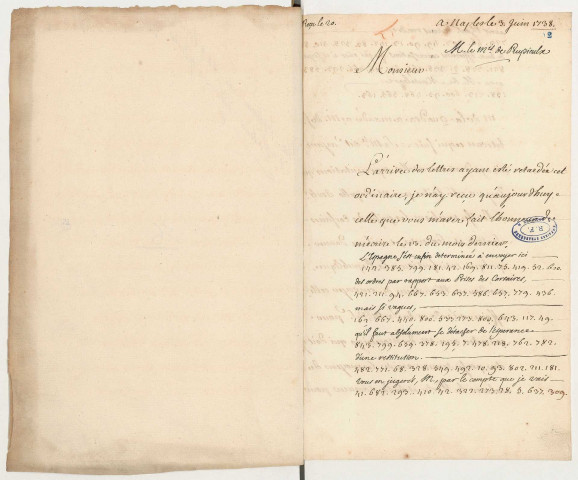 Reçu le 20.
A Naples le 3 Juin 1738.
2
M. le mis de Puysieulx
Monsieur
L'arrivée des lettres ayant esté retardée cet
ordinaire, je n'ay reçu qu'aujourd'huy
celle que vous m'avez fait l'honneur de
m'écrire le 13. du mois dernier,
L'Espagne s'est enfin determinée à envoyer ici
142. 383. 799. 181. 47. 169. 811. 73. 419. 32. 600.
des ordres par rapport aux Prises des Corsaires,
421. 211. 94. 667. 633. 637. 386. 637. 779. 436.
mais si vagues,
162. 667. 440. 800. 333. 273. 800. 643. 117. 49.
qu'il faut absolument se détacher de l'esperance
843. 799. 639. 378. 198. 7. 478. 218. 762. 782.
d'une restitution.
482. 771. 68. 328. 349. 497. 10. 93. 802. 211. 181.
vous en jugerez, M., par le compte que je vais
41. 687. 293. 410. 42. 327. 273. 28. 3. 637. 309.